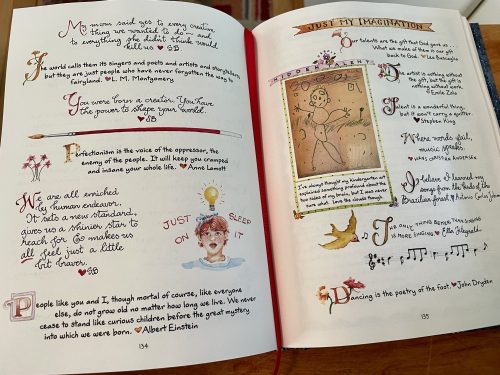 My mom said yes to every creative
thing we wanted to do — and
to everything she didn't think would
kill us. ♥ SB
The world calls them its singers and poets and artists and storytellers;
but they are just people who have never forgotten the way to
fairyland. ♥ L.M. Montgomery
You were born a creator. You have
the power to shape your world.
♥ SB
Perfectionism is the voice of the oppressor, the
enemy of the people. It will keep you cramped
and insane your whole life. ♥ Anne Lamott
We are all enriched
by human endeavor.
It sets a new standard,
gives us a shinier star to
reach for & makes us
all feel just a little
bit braver.
♥ SB
JUST SLEEP
ON IT
People like you and I, though mortal of course, like everyone
else, do not grow old no matter how long we live. We never
cease to stand like curious children before the great mystery
into which we were born. ♥ Albert Einstein
134
JUST MY IMAGINATION
Our talents are the gift that God gives us...
What we make of them is our gift
back to God. ♥ Leo Buscaglia
HIDDEN TALENT
I've always thought my Kindergarten art
explained something profound about the
two sides of my brain, but I was never
sure what. Love the clouds though.
The artist is nothing without
the gift, but the gift is
nothing without work.
♥ Emile Zola
Talent is a wonderful thing,
but it won't carry a quitter.
♥ Stephen King
Where words fail,
music speaks.
♥ HANS CHRISTIAN ANDERSEN
I believe I learned my
songs from the birds of the
Brazilian forest. ♥ Antonio Carlos Jobim
THE ONLY THING BETTER THAN SINGING
IS MORE SINGING. ♥ Ella Fitzgerald
Dancing is the poetry of the foot. ♥ John Dryden
135